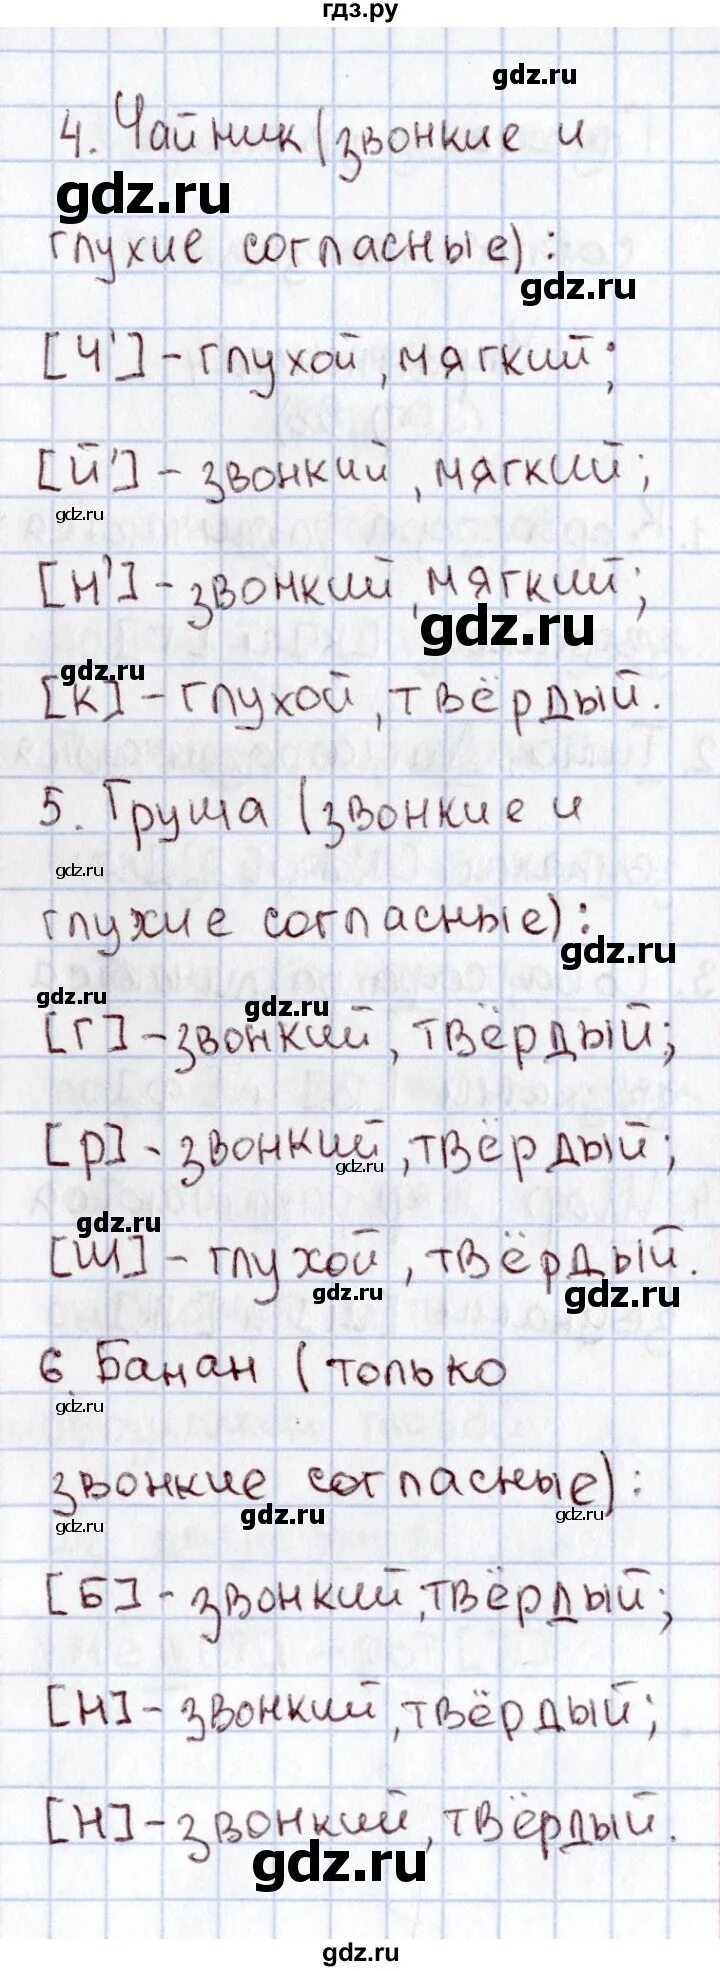 гдз.ру
gdz.ru
4. Чайник (звонкие и
gdz.ru
глухие согласные):
gdz.ru
[ч'] - глухой, мягкий;
[й'] - звонкий, мягкий;
gdz.ru
[н'] - звонкий, мягкий;
gdz.ru
gdz.ru
[к] - глухой, твёрдый.
5. Груша (звонкие и
gdz.ru
глухие согласные):
gdz.ru
gdz.ru
gdz.ru
[г] - звонкий, твёрдый;
[р] - звонкий, твёрдый;
gdz.ru
gdz.ru
[ш] - глухой, твёрдый.
gdz.ru
gdz.ru
6 Банан (только
gdz.ru
звонкие согласные):
gdz.ru
gdz.ru
gdz.ru
[б] - звонкий, твёрдый;
[н] - звонкий, твёрдый;
[н] - звонкий, твёрдый.
gdz.ru
gdz.ru